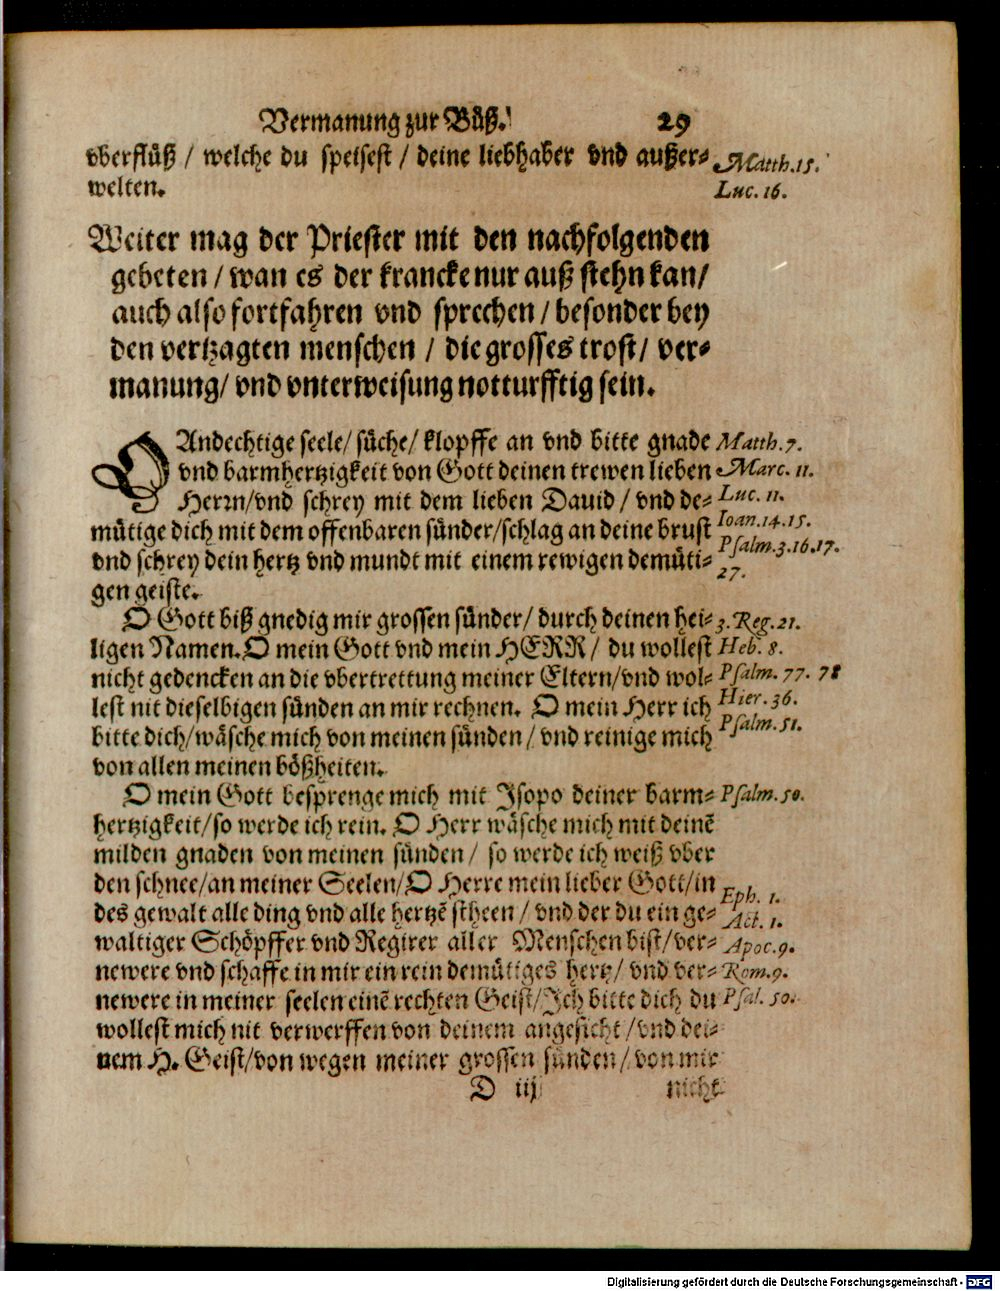 Vermanung zur Bůß. 29
vberflüß / welche du speisest / deine liebhaber vnd außer⸗ Matth. 15.
welten. Luc. 16.
Weiter mag der Priester mit den nachfolgenden
gebeten / wan es der krancke nur auß stehn kan/
auch also fortfahren vnd sprechen / besonder bey
den vertzagten menschen / die grosses trost / ver⸗
manung/ vnd vnterweisung notturfftig sein.
O Andechtige seele/ sůche/ klopffe an vnd bitte gnade Matth. 7.
vnd barmhertzigkeit von Gott deinen trewen lieben Marc. 11.
Herrn/vnd schrey mit dem lieben Dauid / vnd de⸗ Luc. 11.
mütige dich mit dem offenbaren sünder/schlag an deine brust Ioan. 14. 15.
vnd schrey dein hertz vnd mundt mit einem rewigen demüti⸗ Psalm. 3. 16. 17.
gen geiste. 27.
O Gott biß gnedig mir grossen sünder/ durch deinen hei⸗ 3. Reg. 21.
ligen Namen. O mein Gott vnd mein HERR / du wollest Heb. 8.
nicht gedencken an die vbertrettung meiner Eltern/vnd wol⸗ Psalm. 77. 78
lest nit dieselbigen sünden an mir rechnen. O mein Herr ich Hier. 36.
bitte dich/wäsche mich von meinen sünden / vnd reinige mich Psalm. 51.
von allen meinen bößheiten.
O mein Gott besprenge mich mit Isopo deiner barm⸗ Psalm. 50.
hertzigkeit/so werde ich rein. O Herr wäsche mich mit deinē
milden gnaden von meinen sünden / so werde ich weiß vber
den schnee/an meiner Seelen/O Herre mein lieber Gott/in Eph. 1.
des gewalt alle ding vnd alle hertzē stheen / vnd der du ein ge⸗ Act. 1.
waltiger Schöpffer vnd Regirer aller Menschen bist/ver⸗ Apoc. 9.
newere vnd schaffe in mir ein rein demütiges hertz/ vnd ver⸗ Rom. 9.
newere in meiner seelen einē rechten Geist/Ich bitte dich du Psal. 50.
wollest mich nit verwerffen von deinem angesicht /vnd dei⸗
nem H. Geist/von wegen meiner grossen sünden / von mir
D iij nicht
Digitalisierung gefördert durch die Deutsche Forschungsgemeinschaft - DFG